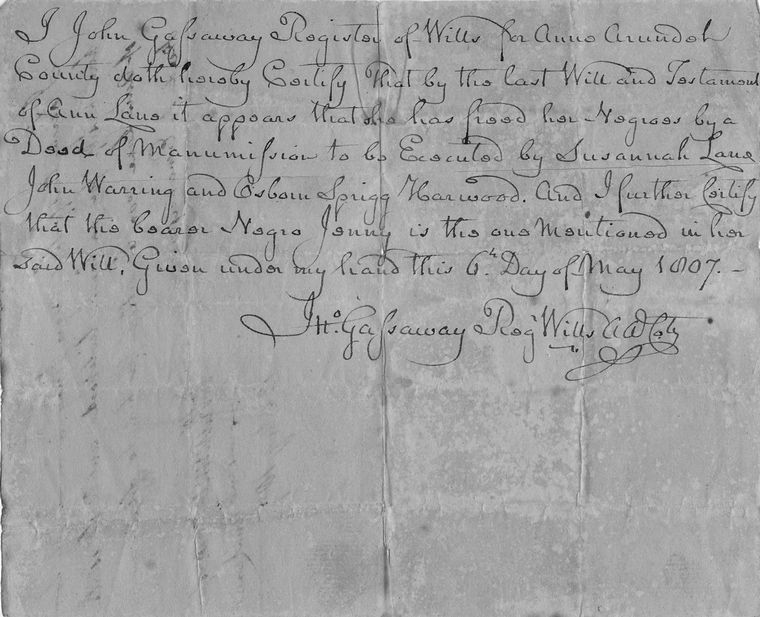 I John Gassaway Register of Wills for Anne Arundel
County doth hereby Certify That by the last Will and Testament
of Ann Lane it appears that she has freed her Negroes by a
Deed of Manumission to be Executed by Susannah Lane
John Warring and Osborn Sprigg Harwood. And I further Certify
that the bearer Negro Jenny is the one Mentioned in her
said Will, Given under my hand this 6th. Day of May 1807. –
Jno. Gassaway Regr Wills AA Coty